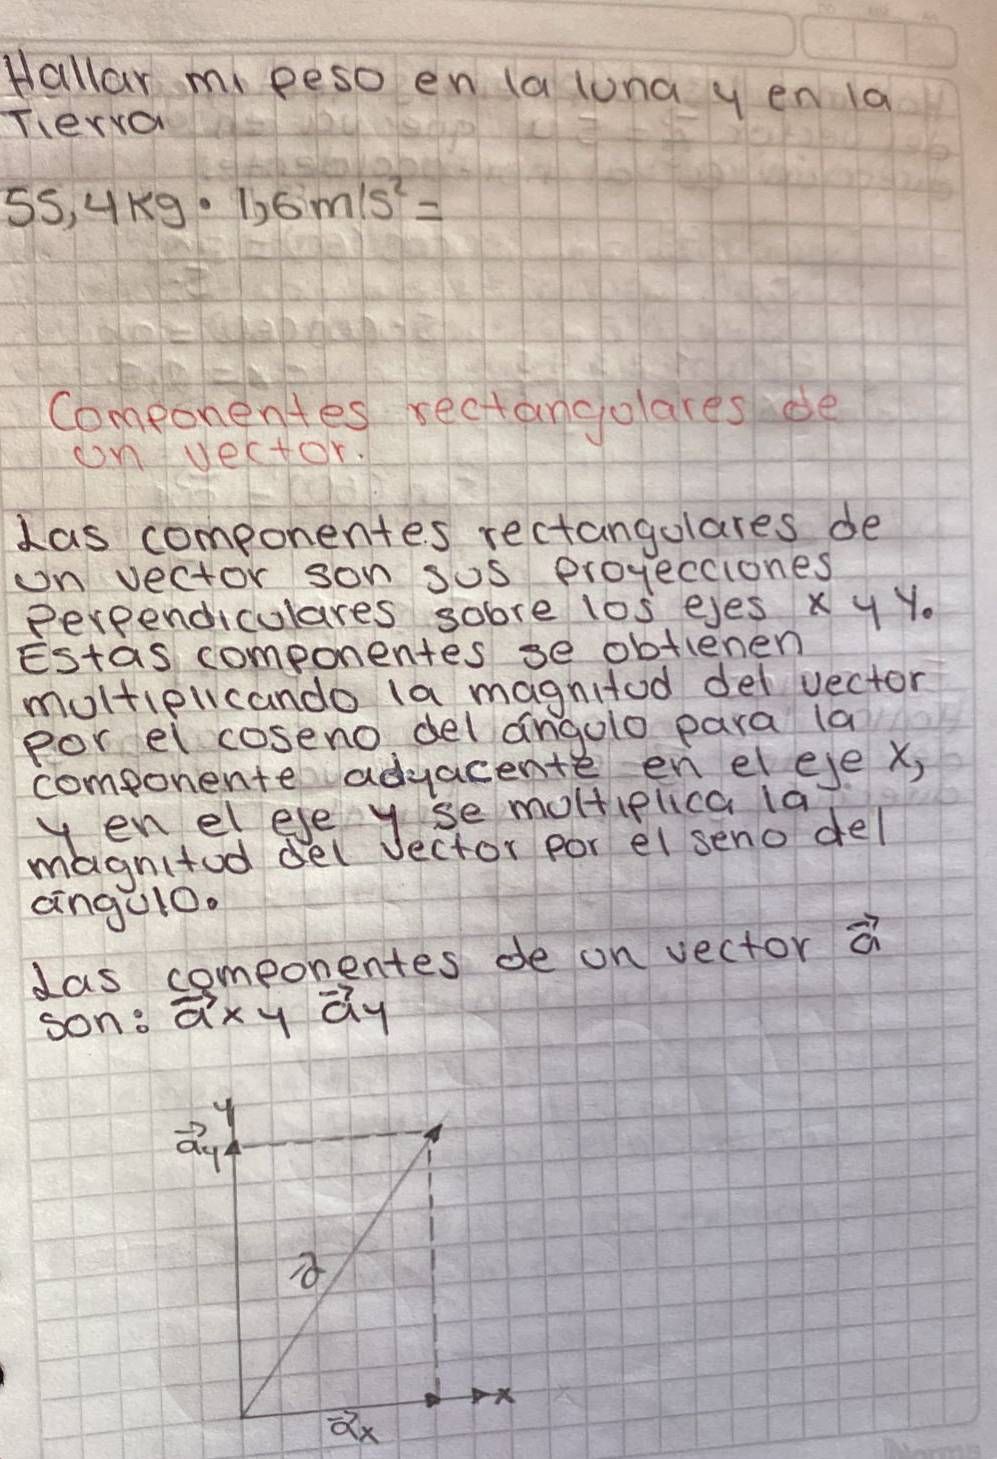 Hallar mi peso en la luna y en la
Tierra
55,4kg • 1,6m/s² =
Componentes rectangulares de
un vector.
Las componentes rectangulares de
un vector son sus proyecciones
perpendiculares sobre los ejes x y y.
Estas componentes se obtienen
multiplicando la magnitud del vector
por el coseno del ángulo para la
componente adyacente en el eje x,
y en el eje y se multiplica la
magnitud del vector por el seno del
ángulo.
Las componentes de un vector a⃗
son: a⃗x y a⃗y
y
a⃗y
a⃗
x
a⃗x